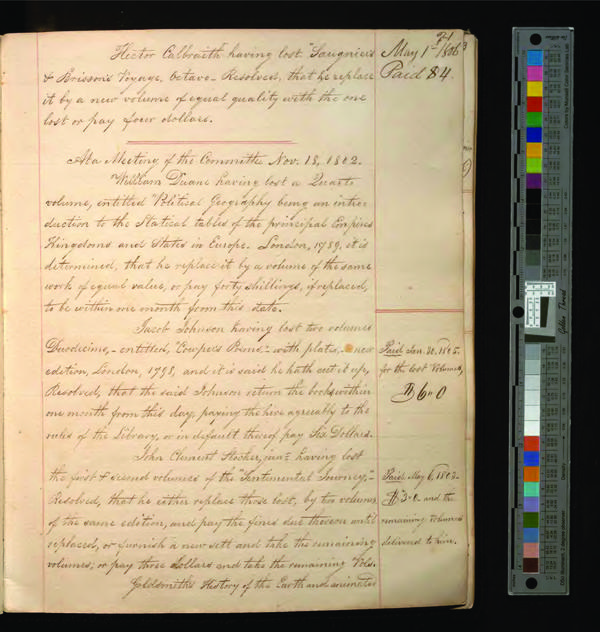 Hector Calbraith having lost "Saugnier's
& Brisson's Voyage, octavo - Resolved, that he replace
it by a new volume of equal quality with the one
lost or pay four dollars.
May 1st 1806
Paid $4.
At a Meeting of the Committee Nov. 18, 1802.
William Duane having lost a Quarto
volume, entitled "Political Geography being an intro-
duction to the Statical tables of the principal Empires
Kingdoms and States in Europe. London, 1789, it is
determined, that he replace it by a volume of the same
work of equal value, or pay forty shillings, if replaced,
to be within one month from this date.
Jacob Johnson having lost two volumes
Duodecimo, - entitled, "Cowper's Poems," - with plates, - new
edition, London, 1798, and it is said he hath cut it up,
Resolved, that the said Johnson return the books within
one month from this day, paying the hire agreeably to the
rules of the Library, or in default thereof pay Six Dollars.
Paid Jan. 30, 1805.
for the lost Volumes,
6 0
John Clement Stocker, jun.r having lost
the first & second volumes of the "Sentimental Journey," -
Resolved, that he either replace those lost, by two volumes
of the same edition, and pay the fines due thereon until
replaced, or furnish a new sett and take the remaining
volumes; or pay three dollars and take the remaining Vols.
Paid, May 6, 1803-
3 0 and the
remaining Volumes
delivered to him.
Goldsmith's History of the Earth and animated